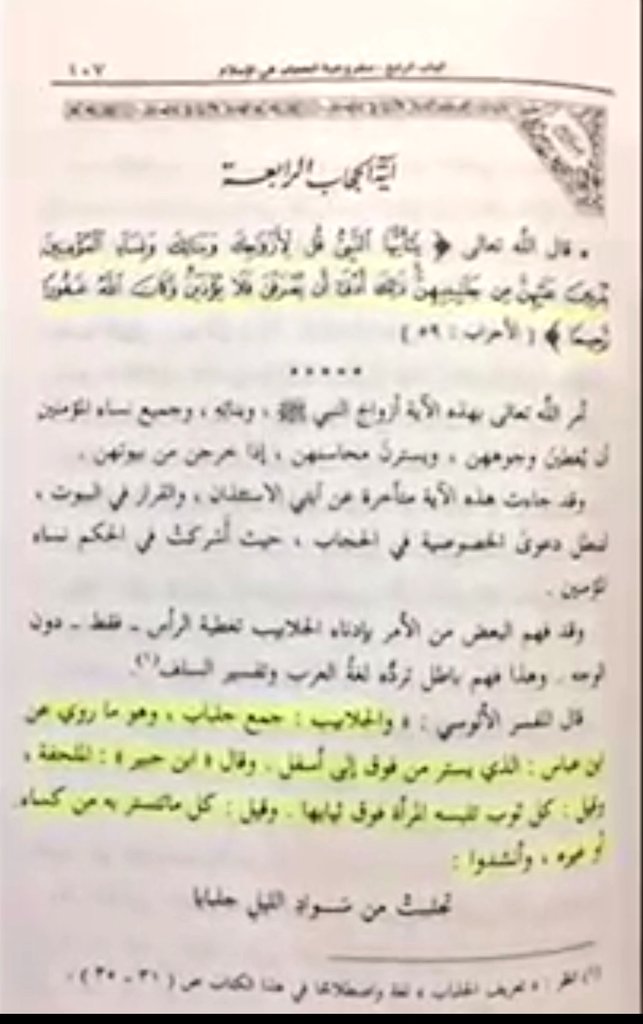 الباب الرابع - مشروعية الحجاب في الإسلام ١٠٧
آية الحجاب الرابعة
• قال الله تعالى ﴿ يَٰٓأَيُّهَا ٱلنَّبِىُّ قُل لِّأَزْوَٰجِكَ وَبَنَاتِكَ وَنِسَآءِ ٱلْمُؤْمِنِينَ
يُدْنِينَ عَلَيْهِنَّ مِن جَلَٰبِيبِهِنَّ ذَٰلِكَ أَدْنَىٰٓ أَن يُعْرَفْنَ فَلَا يُؤْذَيْنَ وَكَانَ ٱللَّهُ غَفُورًا
رَّحِيمًا ﴾ ( الأحزاب : ٥٩ )
*****
أمر الله تعالى بهذه الآية أزواج النبي ﷺ ، وبناته ، وجميع نساء المؤمنين
أن يُغطين وجوههن ، ويسترنَ محاسنهن ، إذا خرجن من بيوتهن .
وقد جاءت هذه الآية متأخرة عن آيتي الاستئذان ، والقرار في البيوت ،
لتبطل دعوىٰ الخصوصية في الحجاب ، حيث أشركتْ في الحكم نساء
المؤمنين .
وقد فهم البعض من الأمر بإدناء الجلابيب تغطية الرأس - فقط - دون
الوجه . وهذا فهم باطل تردُّه لغةُ العرب وتفسير السلف(١).
قال المفسر الألوسي : « والجلابيب : جمع جلباب ، وهو ما روي عن
ابن عباس : الذي يستر من فوق إلى أسفل . وقال « ابن جبير » : المقنعة ،
وقيل : كل ثوب تلبسه المرأة فوق ثيابها . وقيل : كل ماتتستر به من كساء
أو غيره ، وأنشدوا :
تجلببتُ من سَـوادِ الليلِ جلبابا
(١) انظر : « تعريف الجلباب » لغة واصطلاحًا في هذا الكتاب ص ( ٣١ - ٣٥ ) .